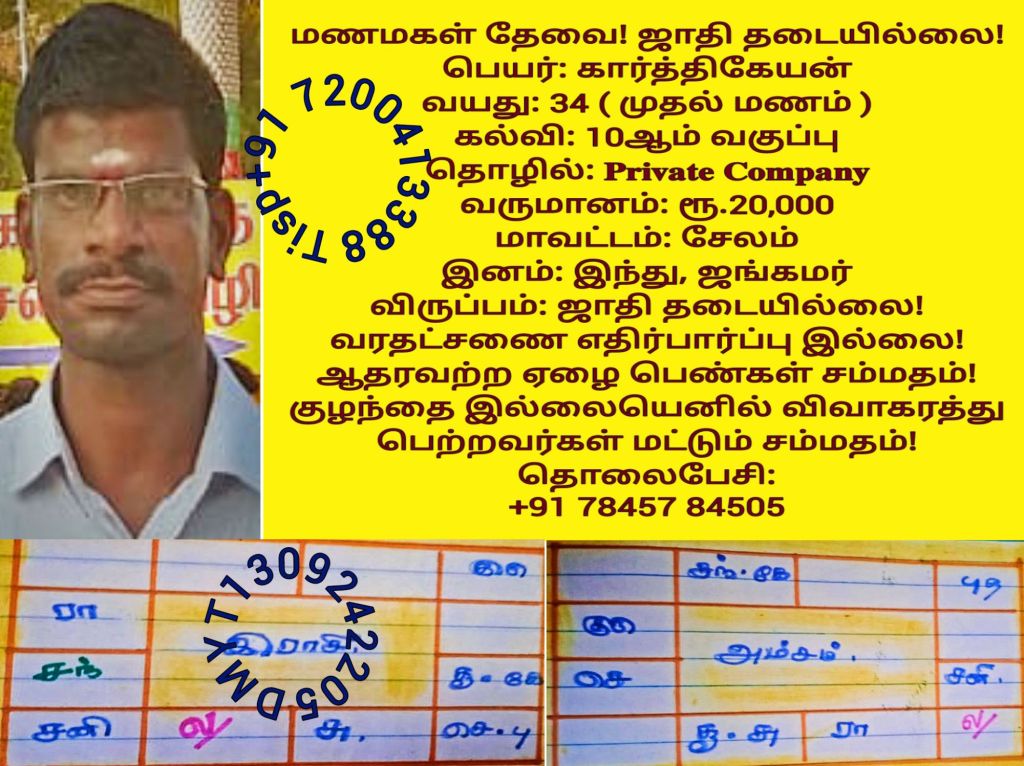 மணமகள் தேவை! ஜாதி தடையில்லை!
பெயர்: கார்த்திகேயன்
வயது: 34 ( முதல் மணம் )
கல்வி: 10ஆம் வகுப்பு
தொழில்: Private Company
வருமானம்: ரூ.20,000
மாவட்டம்: சேலம்
இனம்: இந்து, ஜங்கமர்
விருப்பம்: ஜாதி தடையில்லை!
வரதட்சணை எதிர்பார்ப்பு இல்லை!
ஆதரவற்ற ஏழை பெண்கள் சம்மதம்!
குழந்தை இல்லையெனில் விவாகரத்து
பெற்றவர்கள் மட்டும் சம்மதம்!
தொலைபேசி:
+91 78457 84505
Tisp+91 7200413388
ரா
சந்
இராசி.
சனி
ல/
சு.
செ.பு
DMYT1309242205
சந்.கே
புத
அம்சம்.
செ
சனி.
சு
ரா
ல/